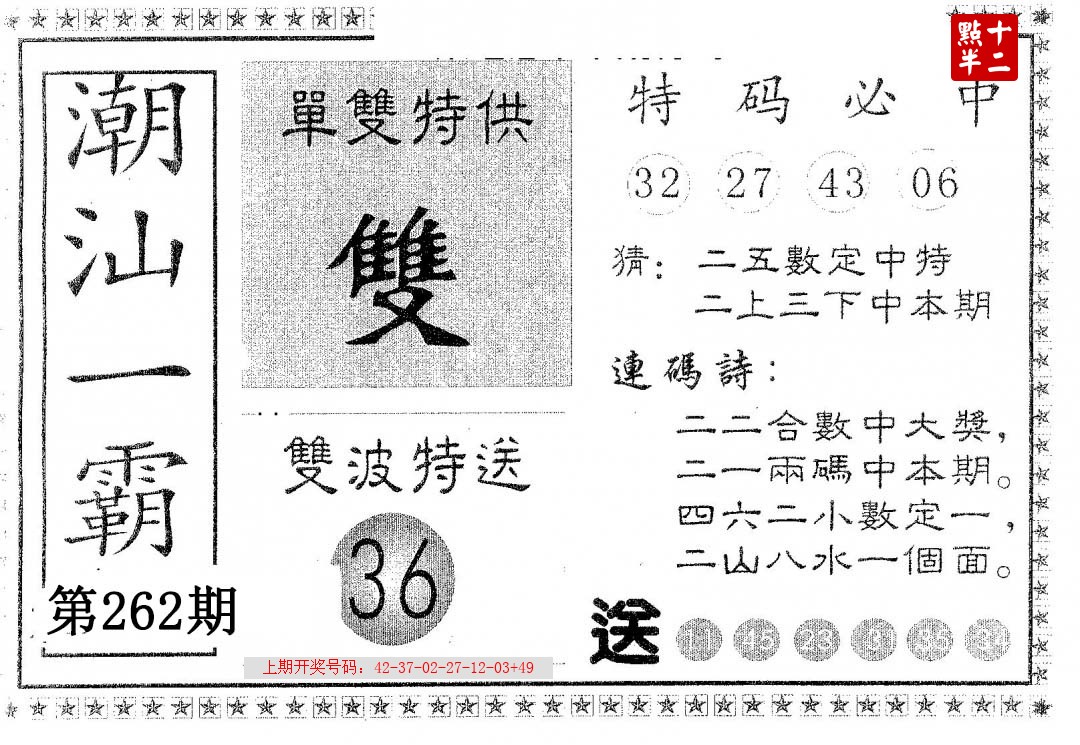 潮汕一霸
第262期
單雙特供
雙
雙波特送
36
上期开奖号码：42-37-02-27-12-03+49
十二
點半
特码必中
32 27 43 06
猜：二五數定中特
二上三下中本期
連碼詩：
二二合數中大獎，
二一兩碼中本期。
四六二小數定一，
二山八水一個面。
送 11 45 23 31 35 34